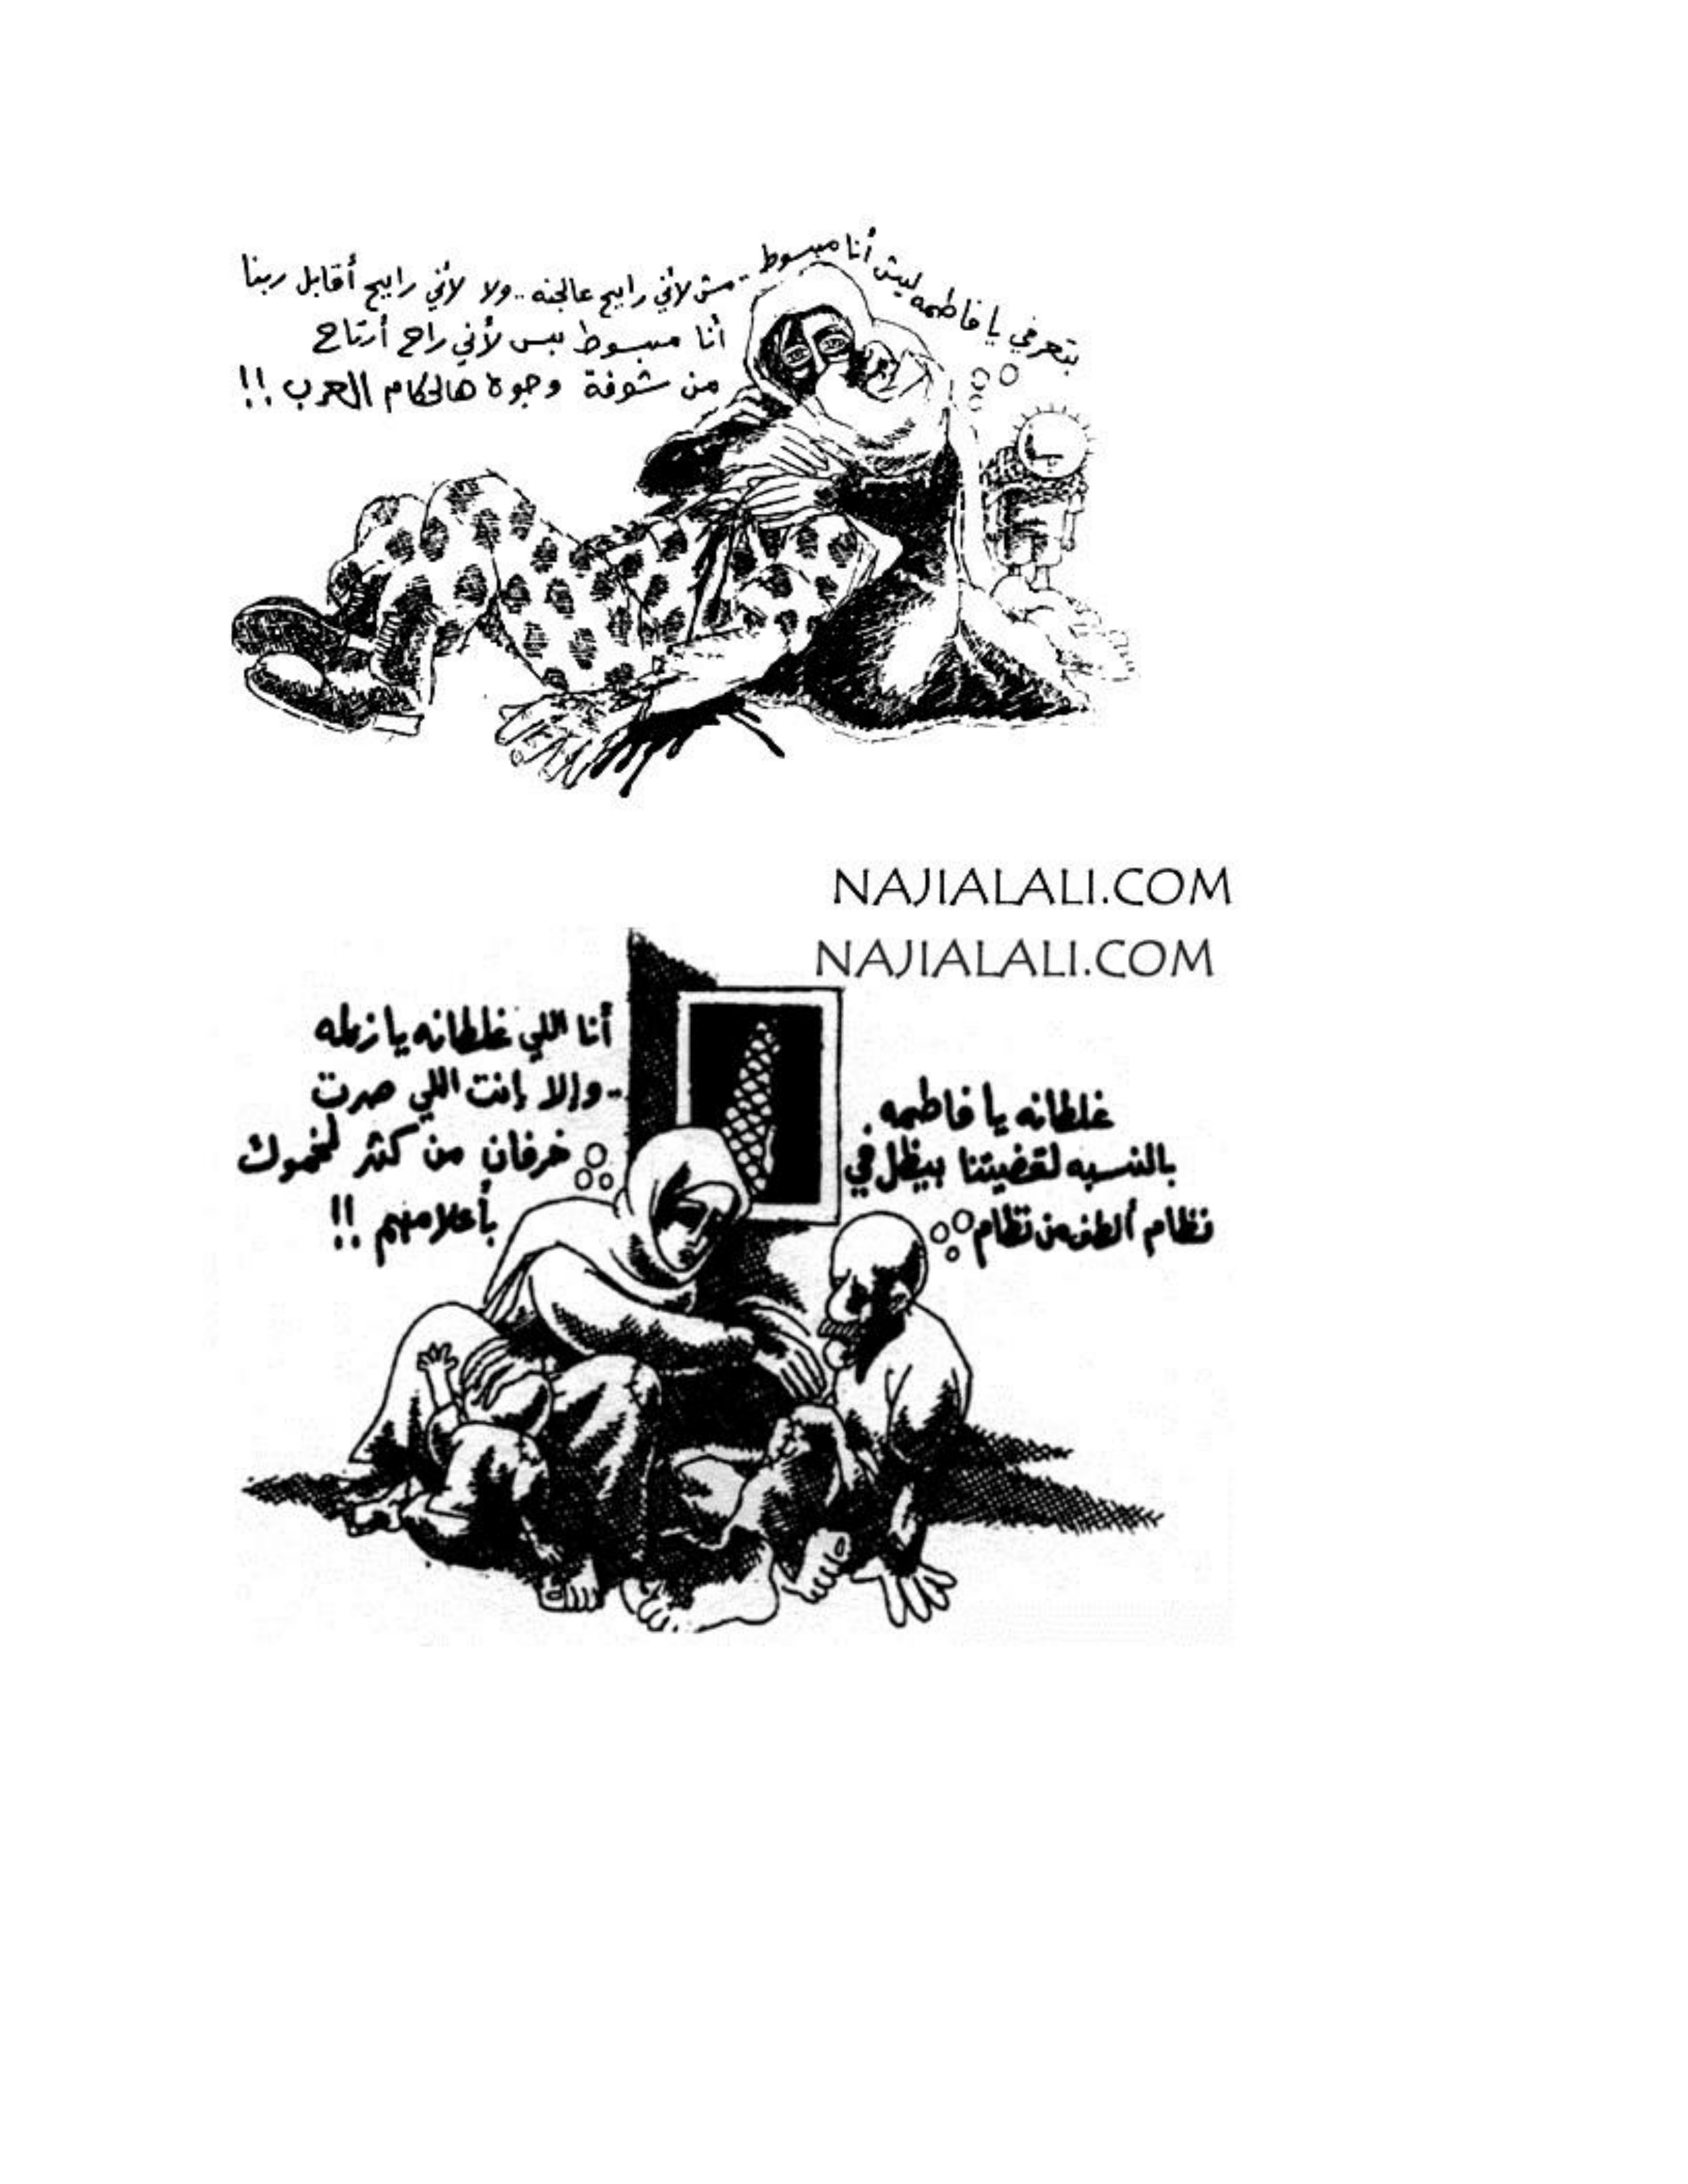 بتعرفي يا فاطمه ليش أنا مبسوط
.. مش لأني رايح عالجنه .. ولا لأني رايح أقابل ربنا
أنا مبسوط بس لأني راح أرتاح
من شوفة وجوة هالحكام العرب !!
NAJIALALI.COM
NAJIALALI.COM
غلطانه يا فاطمه
بالنسبه لقضيتنا بيظل في
نظام ألطف من نظام
أنا اللي غلطانه يا زلمه
.. وإلا إنت اللي صرت
خرفان من كثر لخموك
بأعلامهم !!